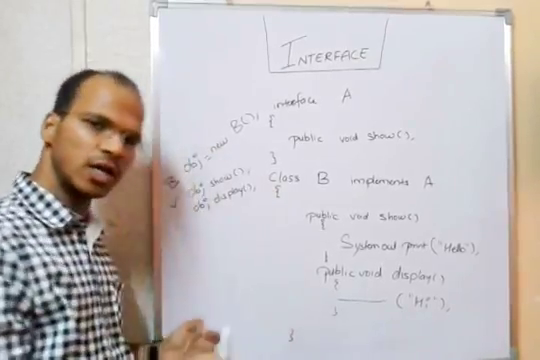 INTERFACE
interface A
{
public void show();
}
class B implements A
{
public void show()
{
System.out.print("Hello");
}
public void display()
{
("Hi");
}
}
B obj = new B();
obj.show();
obj.display();